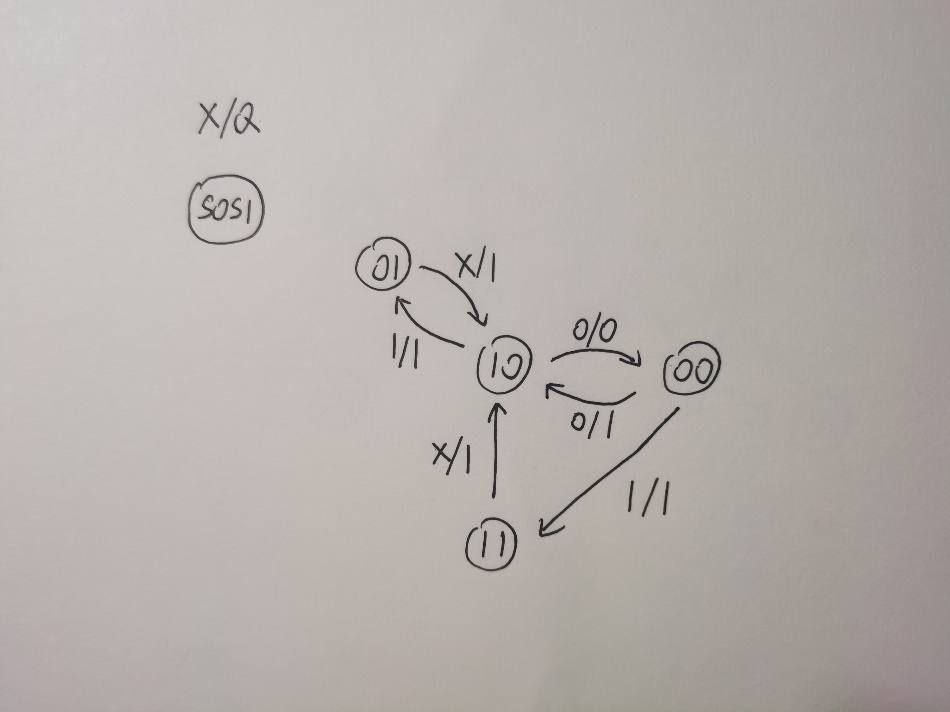 X/Q
S0S1
01
X/1
1/1
10
0/0
00
0/1
X/1
1/1
11